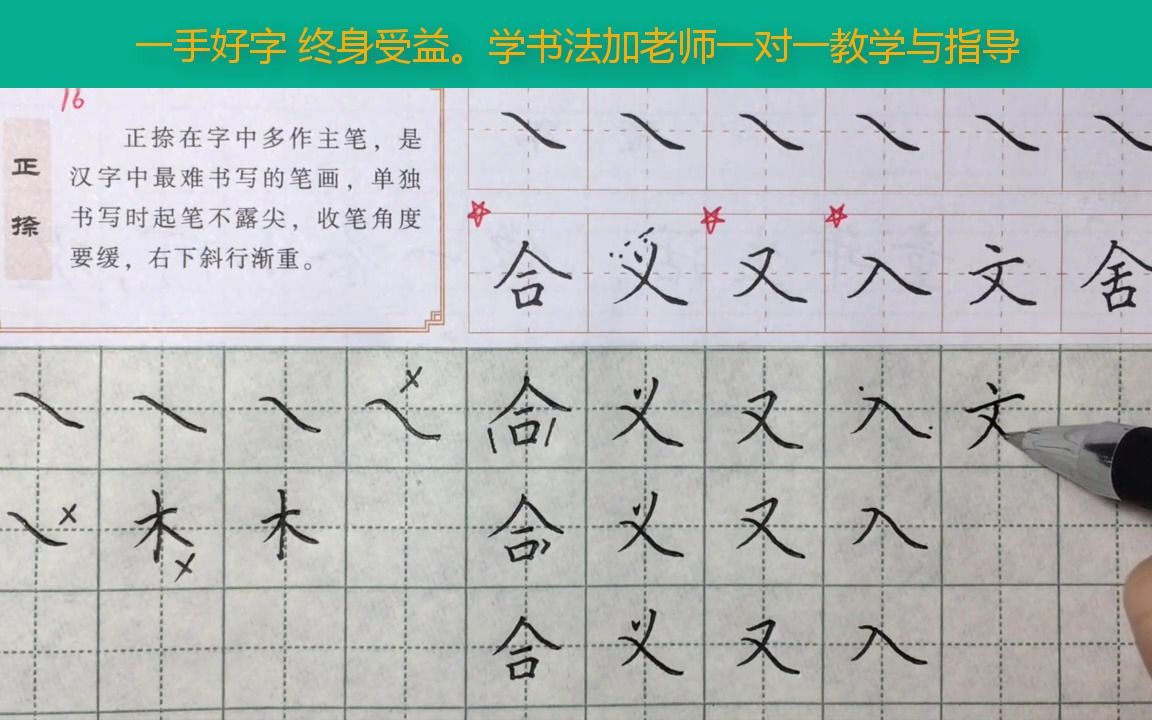 一手好字 终身受益。学书法加老师一对一教学与指导
16
正捺
正捺在字中多作主笔，是
汉字中最难书写的笔画，单独
书写时起笔不露尖，收笔角度
要缓，右下斜行渐重。
合 义 又 入 文 舍
合 义 又 入 文
木 木 合 义 又 入
合 义 又 入